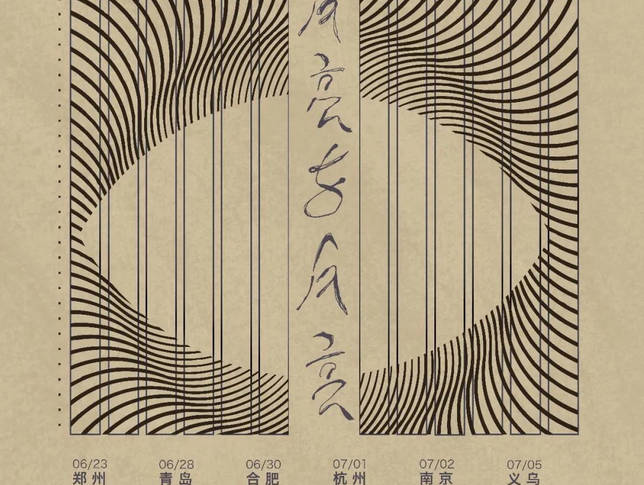 月
亮
与
月
亮
06/23 06/28 06/30 07/01 07/02 07/05
郑州 青岛 合肥 杭州 南京 义乌